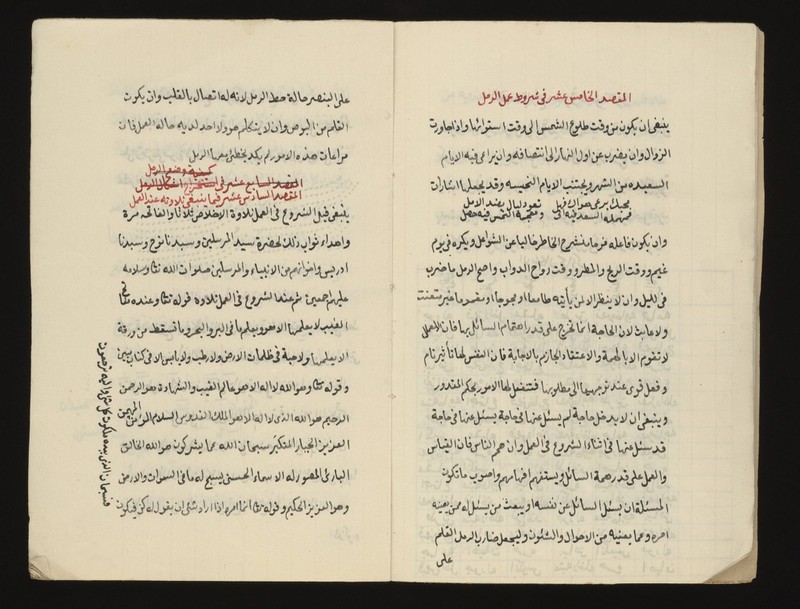 المقصد الخامس عشر في شروط عمل الرمل
ينبغي ان يكون من وقت طلوع الشمس الى وقت استوائها واذا جاوزت
الزوال وان يضرب عن اول النهار الى انتصافه وان يراعى فيه الايام
السعيده من الشهر ويجتنب الايام النحيسه وقد يجعلها اشارات
وان يكون فاعله فرحا منشرح الخاطر خاليا عن الشواغل ويكره في يوم
غيم ووقت الريح والمطر ووقت رواح الدواب واصح الرمل ما ضرب
في الليل وان لا ينظر الا لمن يأتيه طامعا او مغموما غير متعنت
ولا عابث لان الحاجة انما تخرج على قدر اهتمام السائل بها فان الاعمال
لا تقوم الا بالهمة والاعتقاد الجازم بالاجابة فان النفس لها تأثير تام
وفعل قوى عند توجهها الى مطلوبها فتنفعل لها الامور بحكم المقدور
وينبغي ان لا يدخل حاجة لم يسئل عنها في حاجة يسئل عنها في حاجة
قد سئل عنها في اثناء الشروع في العمل وان همم الناس فان القياس
والعمل على قدر همة السائل ويستفهم افهامهم واصوب ما تكون
المسئلة ان يسئل السائل عن نفسه او يبعث من يسئل له ممن يعينه
امره وعما يعنيه من الاحوال والشئون وليجعل ضارب الرمل القلم
على
على البنصر حالة خط الرمل لانه له اتصال بالقلب وان يكون
القلم من البوص وان لا يتكلم هو ولا احد لديه حالة العمل فان
مراعات هذه الامور لم يكد يخطئ معها الرمل
كيفية وضع الرمل
المقصد السابع عشر في استخراج اشكال الرمل
المقصد السادس عشر فيما ينبغي تلاوته عند العمل
ينبغي قبل الشروع في العمل تلاوة الاخلاص ثلاثا والفاتحه مرة
واهداء ثواب ذلك لحضرة سيد المرسلين وسيدنا نوح وسيدنا
ادريس واخوانهم من الانبياء والمرسلين صلوات الله تعالى وسلامه
عليهم اجمعين ثم عند الشروع في العمل تلاوة قوله تعالى وعنده مفاتح
الغيب لا يعلمها الا هو ويعلم ما في البر والبحر وما تسقط من ورقة
الا يعلمها ولا حبة في ظلمات الارض ولا رطب ولا يابس الا في كتاب مبين
وقوله تعالى هو الله لا اله الا هو عالم الغيب والشهادة هو الرحمن
الرحيم هو الله الذي لا اله الا هو الملك القدوس السلام المؤمن المهيمن
العزيز الجبار المتكبر سبحان الله عما يشركون هو الله الخالق
البارئ المصور له الاسماء الحسنى يسبح له ما في السموات والارض
وهو العزيز الحكيم وقوله تعالى انما امره اذا اراد شيئا ان يقول له كن فيكون
فسبحان الذي بيده ملكوت كل شئ واليه ترجعون